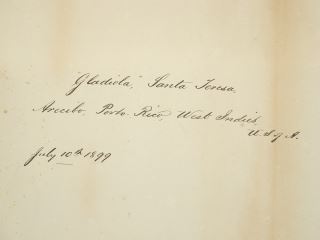 "Gladiola," Santa Teresa
Arecibo. Porto Rico, West Indies
U. S. of A.
July 10th 1899